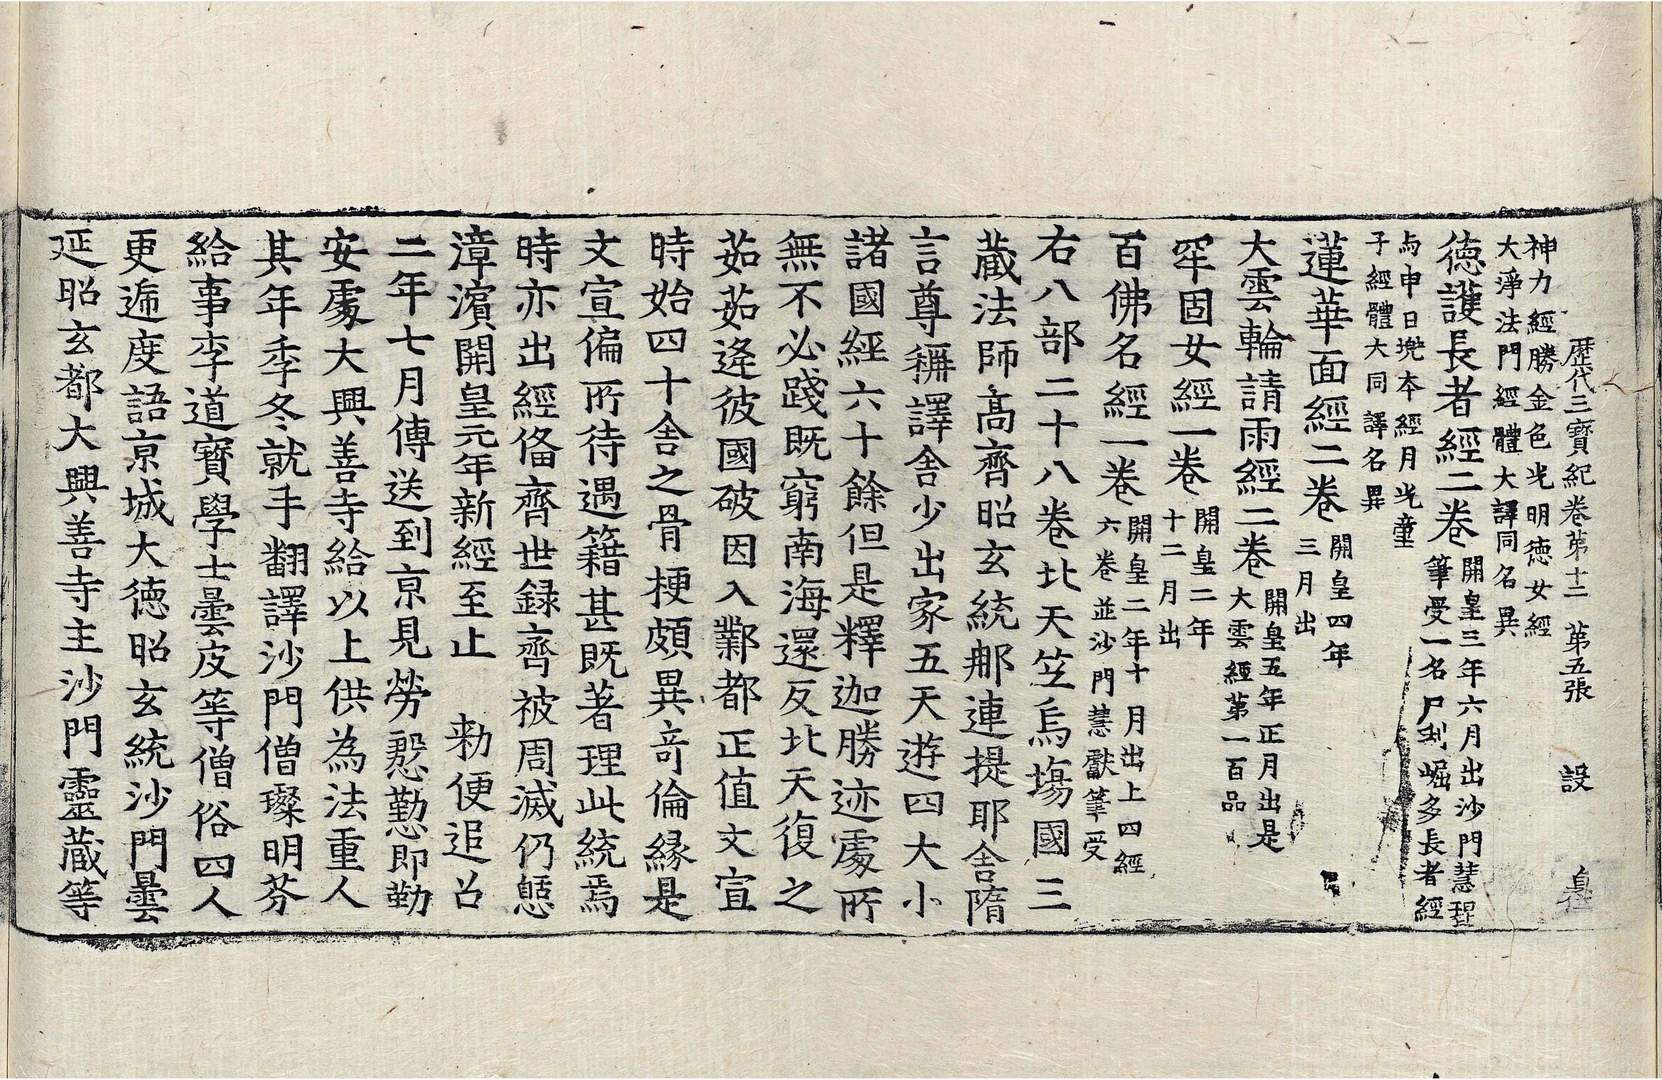 歷代三寶紀卷第十二　第五張　設
神力經勝金色光明德女經
大淨法門經體大譯同名異
德護長者經二卷開皇三年六月出沙門慧琨
筆受一名尸利崛多長者經
与申日兜本經月光童
子經體大同譯名異
蓮華面經二卷開皇四年
三月出
大雲輪請雨經二卷開皇五年正月出是
大雲經第一百品
牢固女經一卷開皇二年
十二月出
百佛名經一卷開皇二年十月出上四經
六卷並沙門慧獻筆受
右八部二十八卷北天竺烏塲國三
藏法師髙齊昭玄統郍連提耶舍隋
言尊稱譯舍少出家五天遊四大小
諸國經六十餘但是釋迦勝迹處所
無不必踐既窮南海還反北天復之
茹茹逄彼國破因入鄴都正值文宣
時始四十舍之骨梗頗異竒倫緣是
文宣偏所待遇籍甚既著理此統焉
時亦出經俻齊世録齊被周滅仍憇
漳濱開皇元年新經至止　勑便追召
二年七月傳送到京見勞慇懃即勤
安處大興善寺給以上供為法重人
其年季冬就手翻譯沙門僧璨明芬
給事李道寶學士曇皮等僧俗四人
更遞度語京城大德昭玄統沙門曇
延昭玄都大興善寺主沙門靈藏等